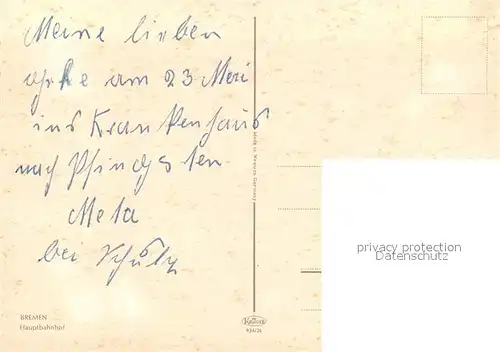 Meine lieben
gehe am 23 Mai
ins Krankenhaus
nach Pfingsten
Meta
bei Schulz
BREMEN
Hauptbahnhof
Krüger
934/26
privacy protection
Datenschutz